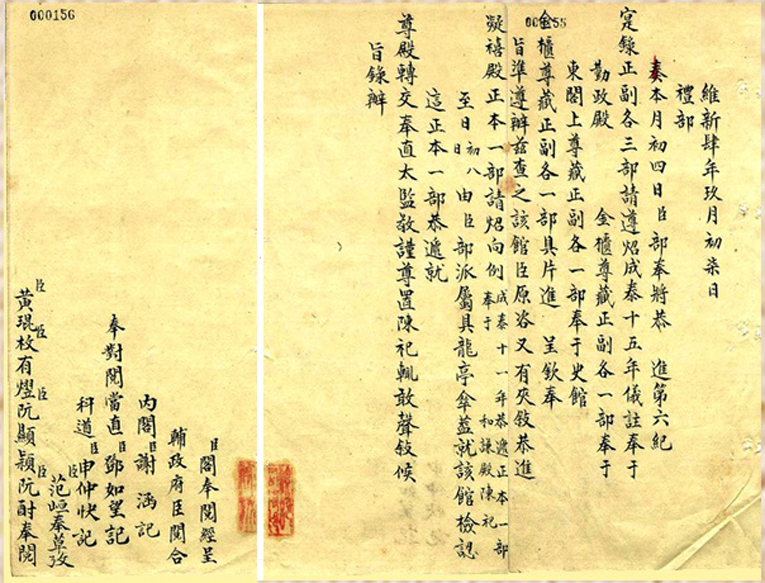 000156
000155
維新肆年玖月初柒日
禮部
奏本月初四日臣部奉將恭 進第六紀
寔錄正副各三部請遵炤成泰十五年儀註奉于
勤政殿 金櫃尊藏正副各一部奉于
東閣上尊藏正副各一部奉于史館
金櫃尊藏正副各一部具片進 呈欽奉
旨準遵辦茲查之該館臣原咨又有夾敘恭進
凝禧殿正本一部請炤向例成泰十一年恭遞正本一部奉于 和謙殿陳祀
至日初八日由臣部派屬具龍亭傘蓋就該館檢認
這正本一部恭遞就
尊殿轉交奉直太監敬謹尊置陳祀輒敢聲敘候
旨錄辦
臣閣奉閱經呈
輔政府臣閱合
內閣臣謝涵記
奉對閱當直臣鄧如望記
科道臣申仲恢記
臣范峘奉草攷
臣黃琨臣枚有燈臣阮顯穎臣阮酎奉閱